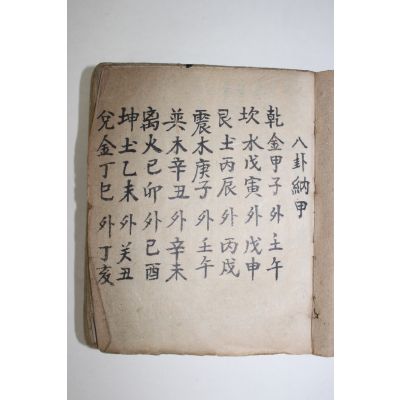 八卦納甲
乾金甲子外壬午
坎水戊寅外戊申
艮土丙辰外丙戌
震木庚子外壬午
巽木辛丑外辛未
离火己卯外己酉
坤土乙未外癸丑
兌金丁巳外丁亥